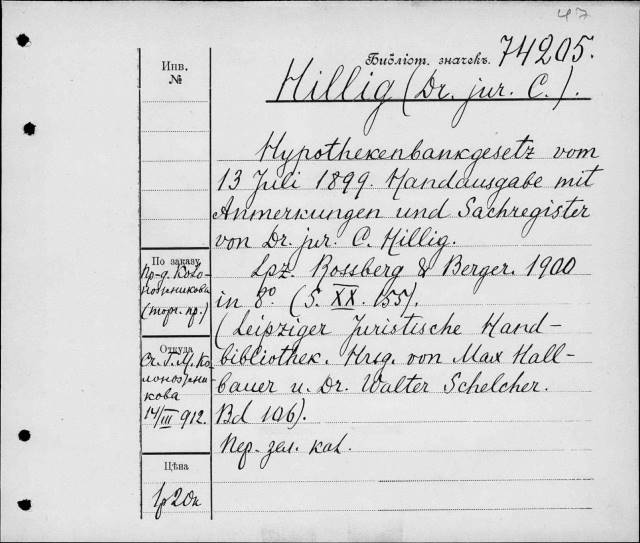 47
Библіот. значекъ. 74205.
Hillig (Dr. jur. C.).
Hypothekenbankgesetz vom
13 Juli 1899. Handausgabe mit
Anmerkungen und Sachregister
von Dr. jur. C. Hillig.
Lpz. Rossberg & Berger. 1900
in 8º. (S. XX. 155).
(Leipziger Juristische Hand-
bibliothek. Hrsg. von Max Hall-
bauer u. Dr. Walter Schelcher.
Bd 106).
Пер. зел. кол.
Инв.
№
По заказу
Пр-д. Коло-
ножникова
(торг. пр.)
Откуда
Ст. Г. М. Ко-
лоножни-
кова
14/III 912.
Цѣна
1р 20к